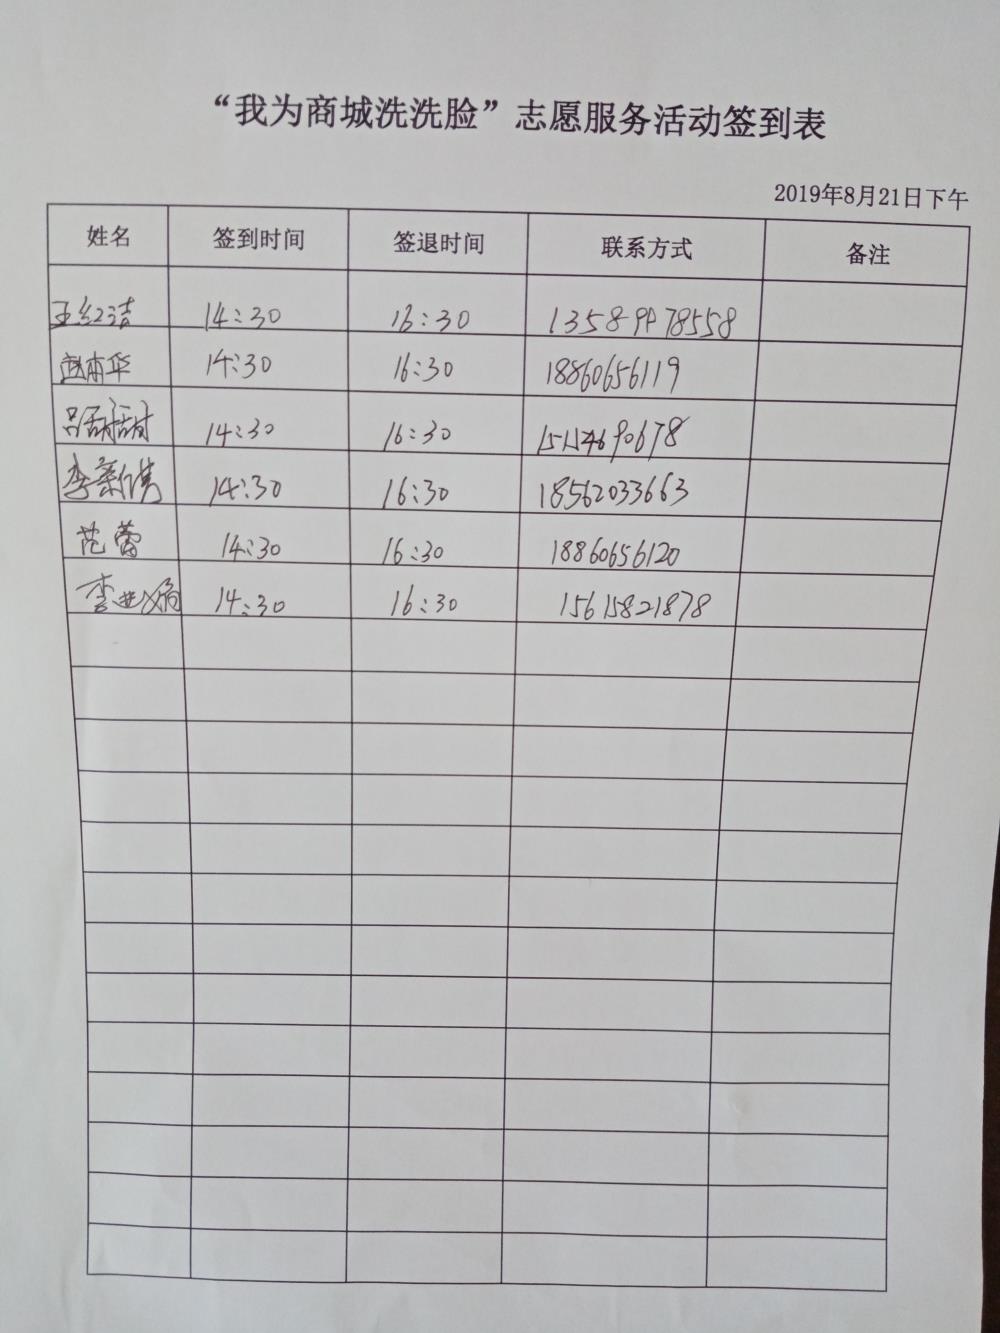 “我为商城洗洗脸”志愿服务活动签到表
2019年8月21日下午
姓名 签到时间 签退时间 联系方式 备注
王红洁 14:30 16:30 13589478558
赵南华 14:30 16:30 18860656119
吕甜甜 14:30 16:30
李新伟 14:30 16:30 18562033663
范蕾 14:30 16:30 18860656120
李亚娟 14:30 16:30 15615821878